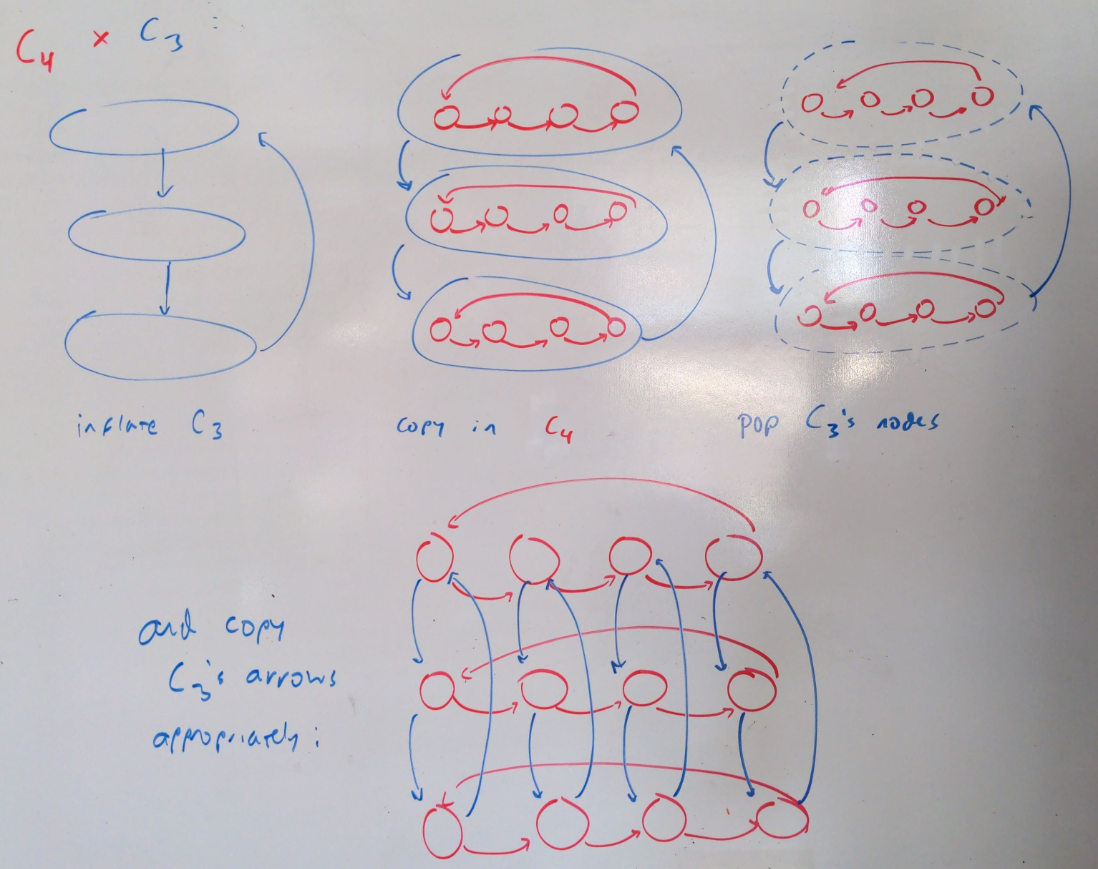 C₄ × C₃ :
inflate C₃
copy in C₄
pop C₃'s nodes
and copy
C₃'s arrows
appropriately :